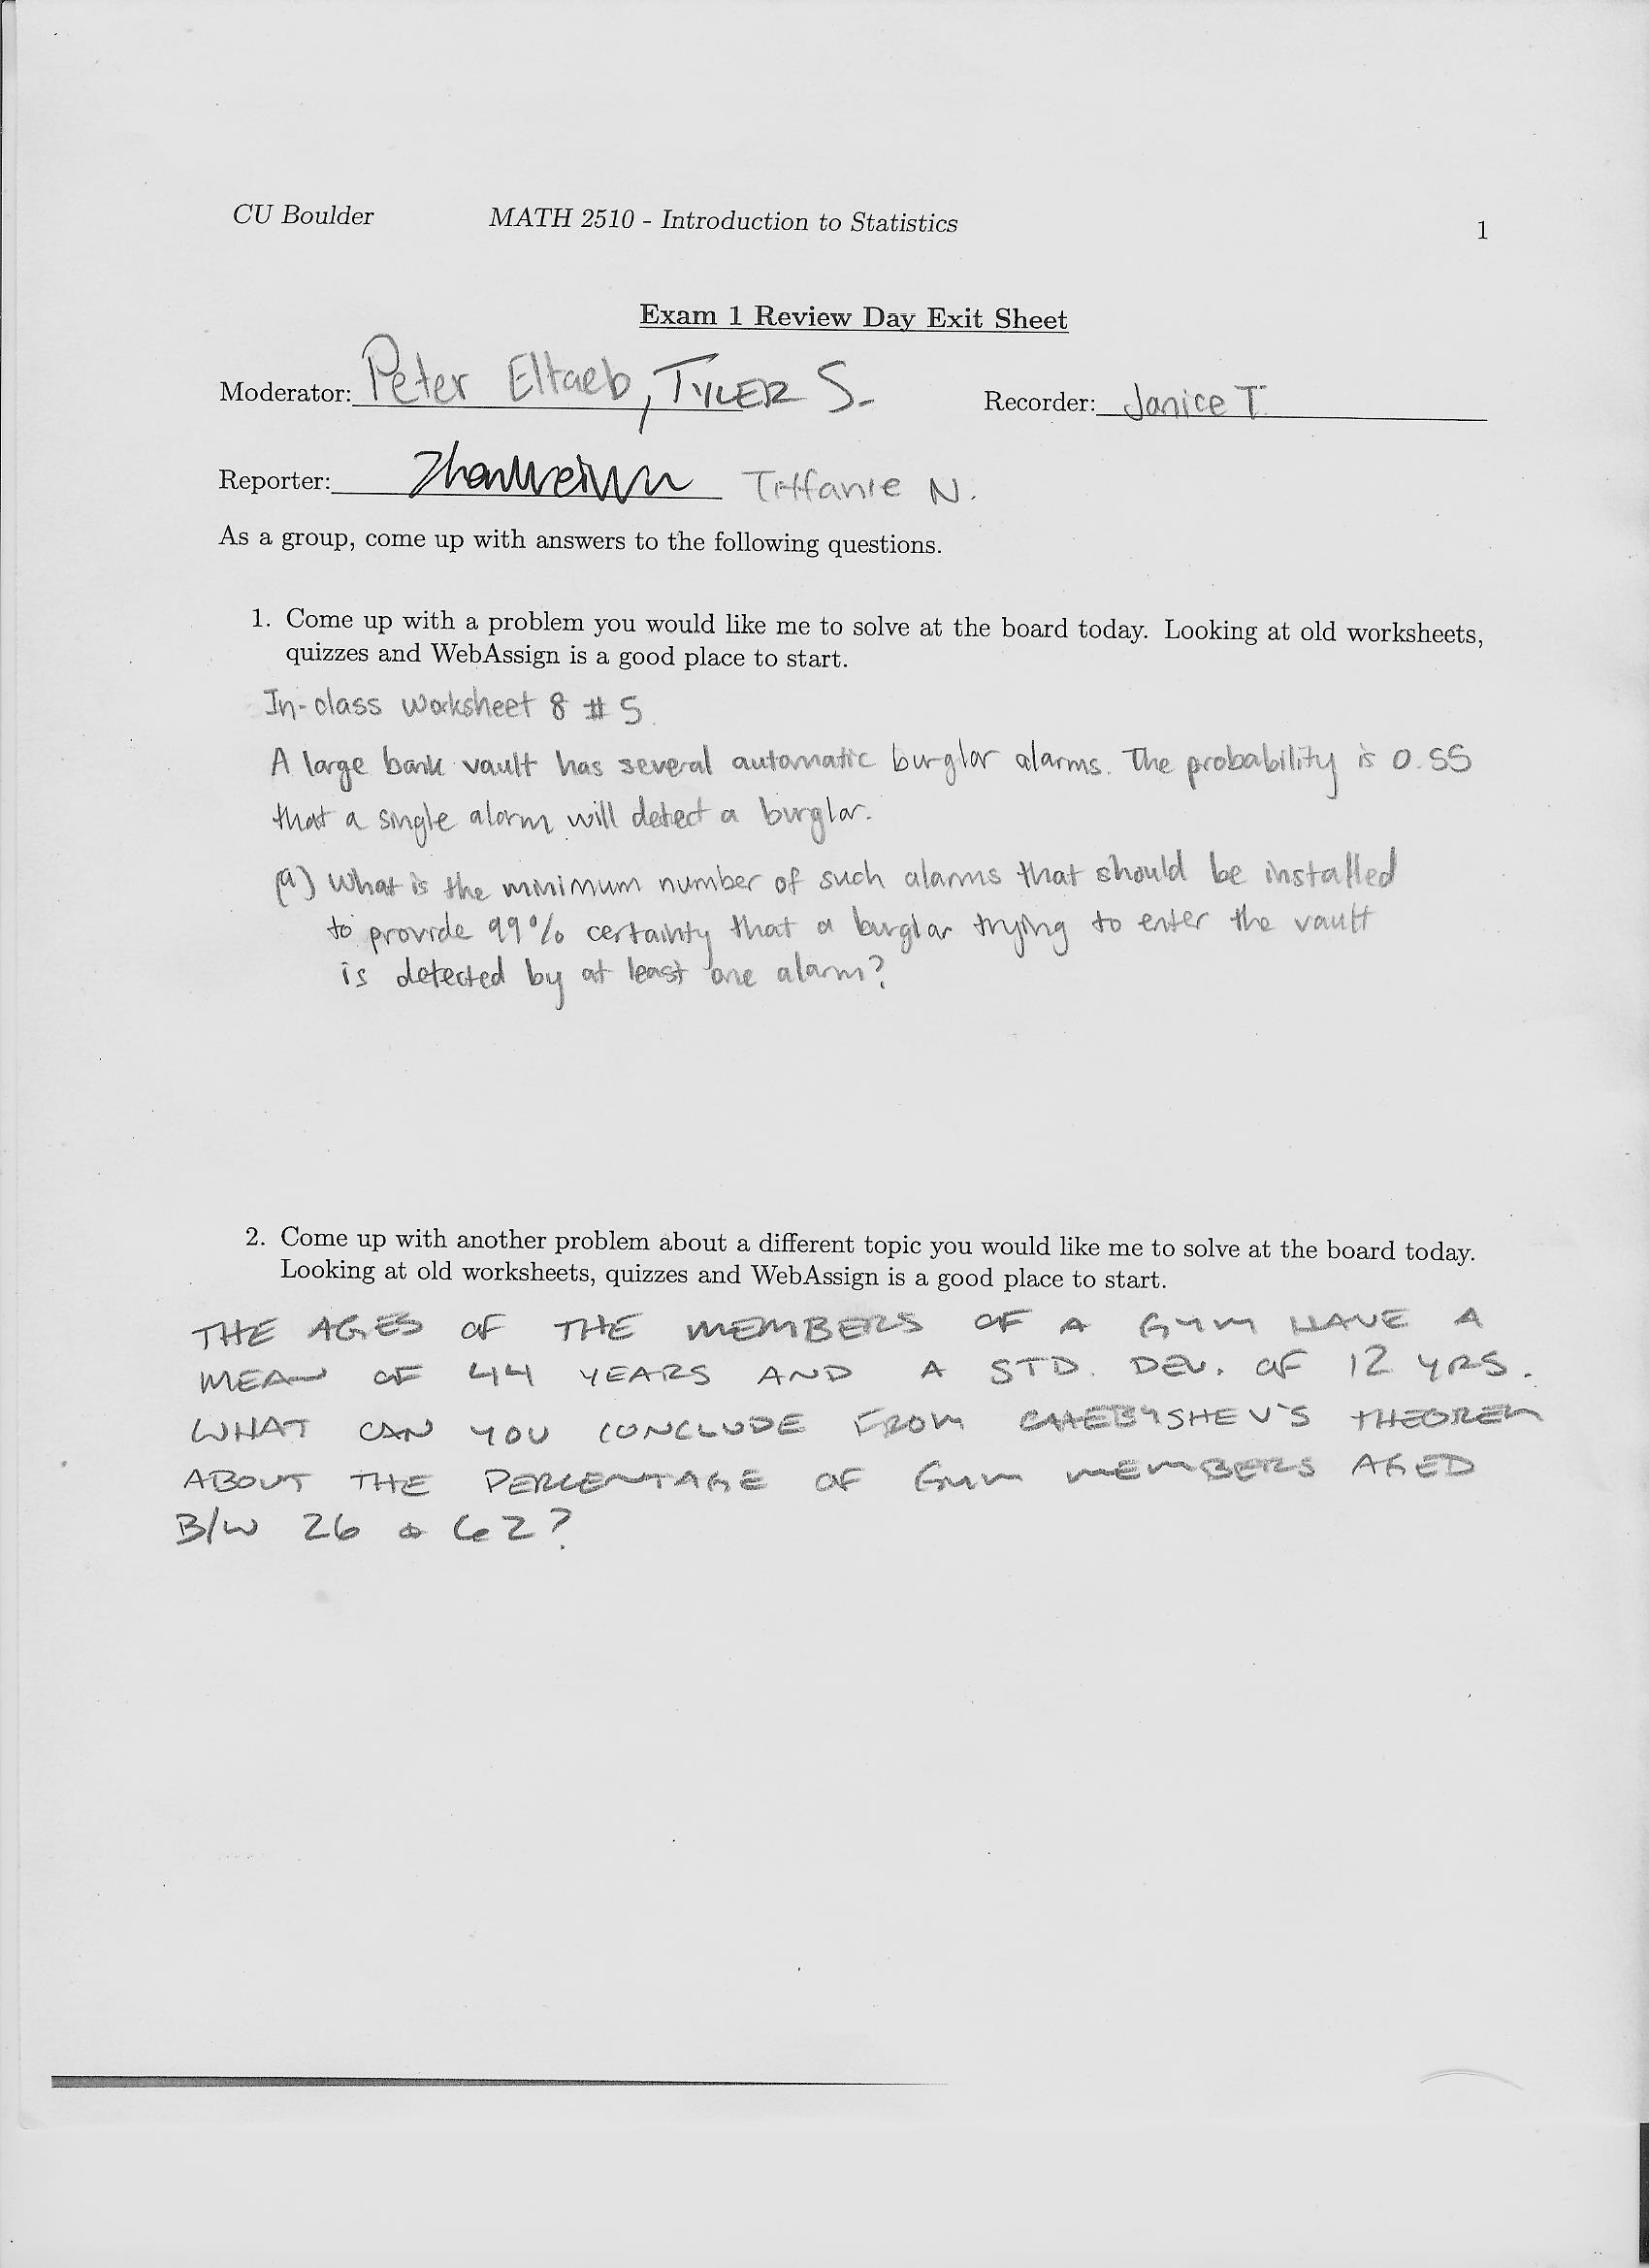 CU Boulder MATH 2510 - Introduction to Statistics 1
Exam 1 Review Day Exit Sheet
Moderator: Peter Eltaeb, TYLER S. Recorder: Janice T.
Reporter: Tiffanie N.
As a group, come up with answers to the following questions.
1. Come up with a problem you would like me to solve at the board today. Looking at old worksheets,
quizzes and WebAssign is a good place to start.
In-class worksheet 8 # 5
A large bank vault has several automatic burglar alarms. The probability is 0.55
that a single alarm will detect a burglar.
(a) What is the minimum number of such alarms that should be installed
to provide 99% certainty that a burglar trying to enter the vault
is detected by at least one alarm?
2. Come up with another problem about a different topic you would like me to solve at the board today.
Looking at old worksheets, quizzes and WebAssign is a good place to start.
THE AGES OF THE MEMBERS OF A GYM HAVE A
MEAN OF 44 YEARS AND A STD. DEV. OF 12 YRS.
WHAT CAN YOU CONCLUDE FROM CHEBYSHEV'S THEOREM
ABOUT THE PERCENTAGE OF GYM MEMBERS AGED
B/W 26 & 62?